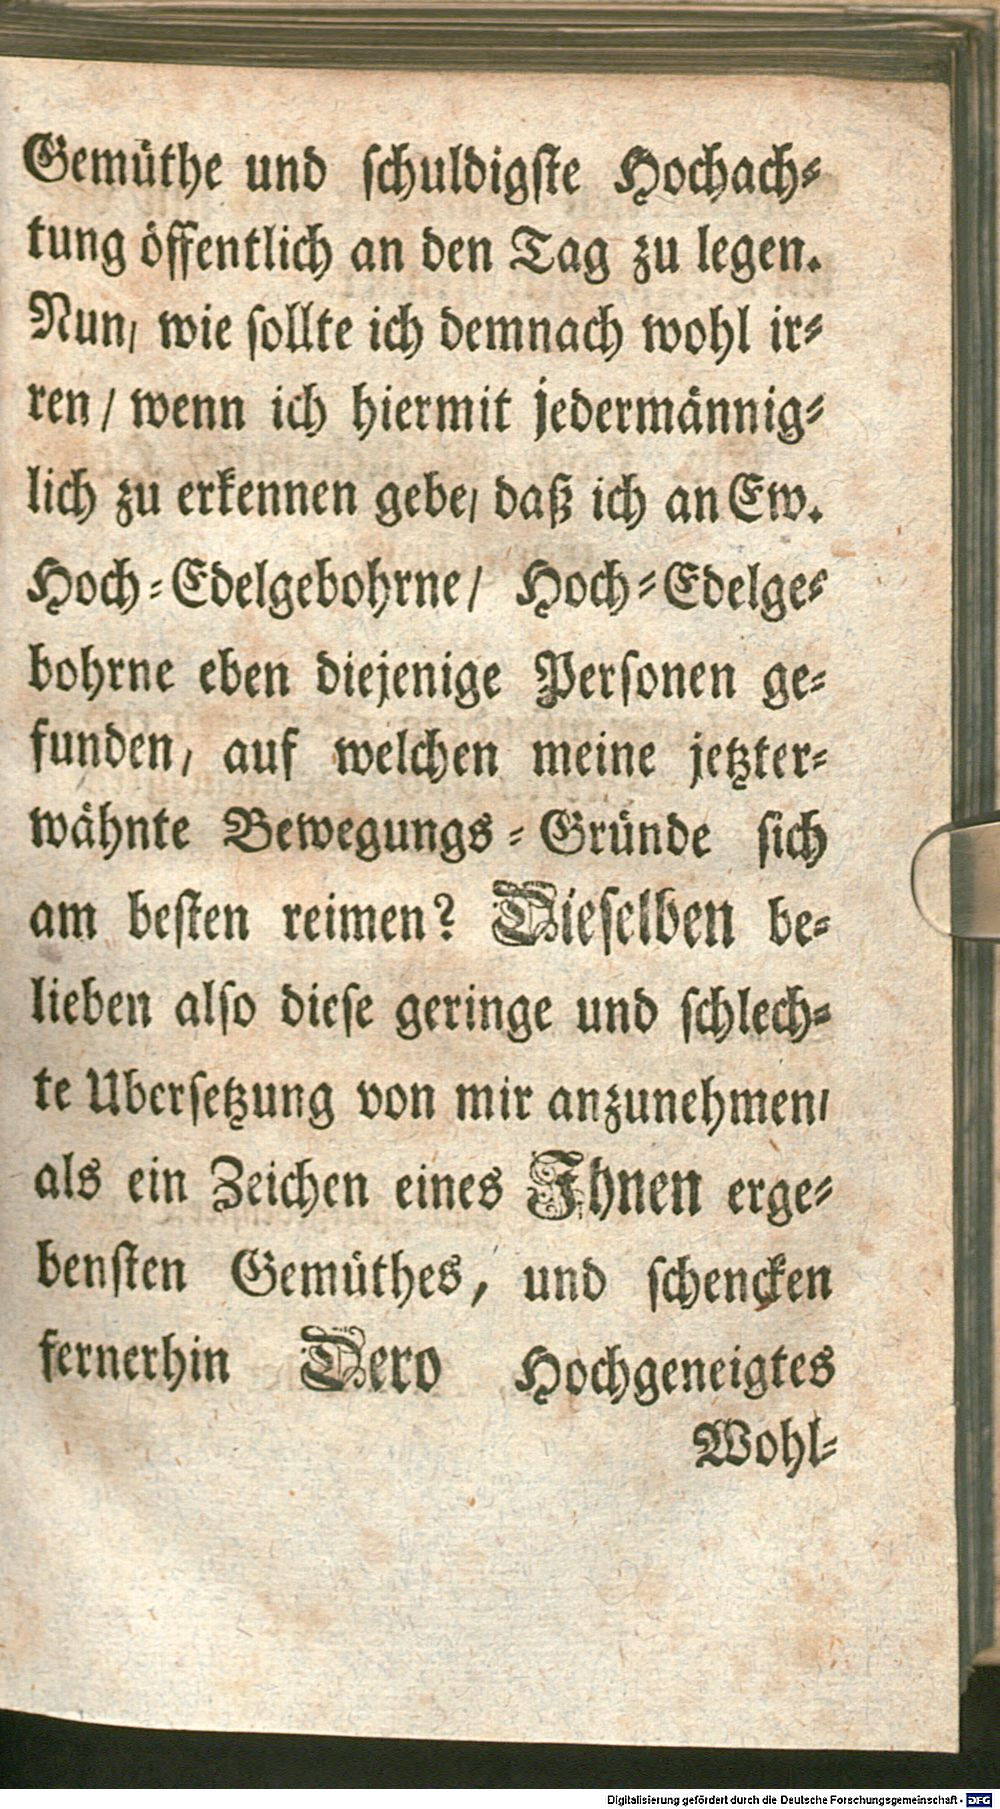 Gemüthe und schuldigste Hochach-
tung öffentlich an den Tag zu legen.
Nun, wie sollte ich demnach wohl ir-
ren / wenn ich hiermit jedermännig-
lich zu erkennen gebe, daß ich an Ew.
Hoch-Edelgebohrne / Hoch-Edelge-
bohrne eben diejenige Personen ge-
funden, auf welchen meine jetzter-
wähnte Bewegungs-Gründe sich
am besten reimen? Dieselben be-
lieben also diese geringe und schlech-
te Ubersetzung von mir anzunehmen,
als ein Zeichen eines Ihnen erge-
bensten Gemüthes, und schencken
fernerhin Dero Hochgeneigtes
Wohl-
Digitalisierung gefördert durch die Deutsche Forschungsgemeinschaft - DFG